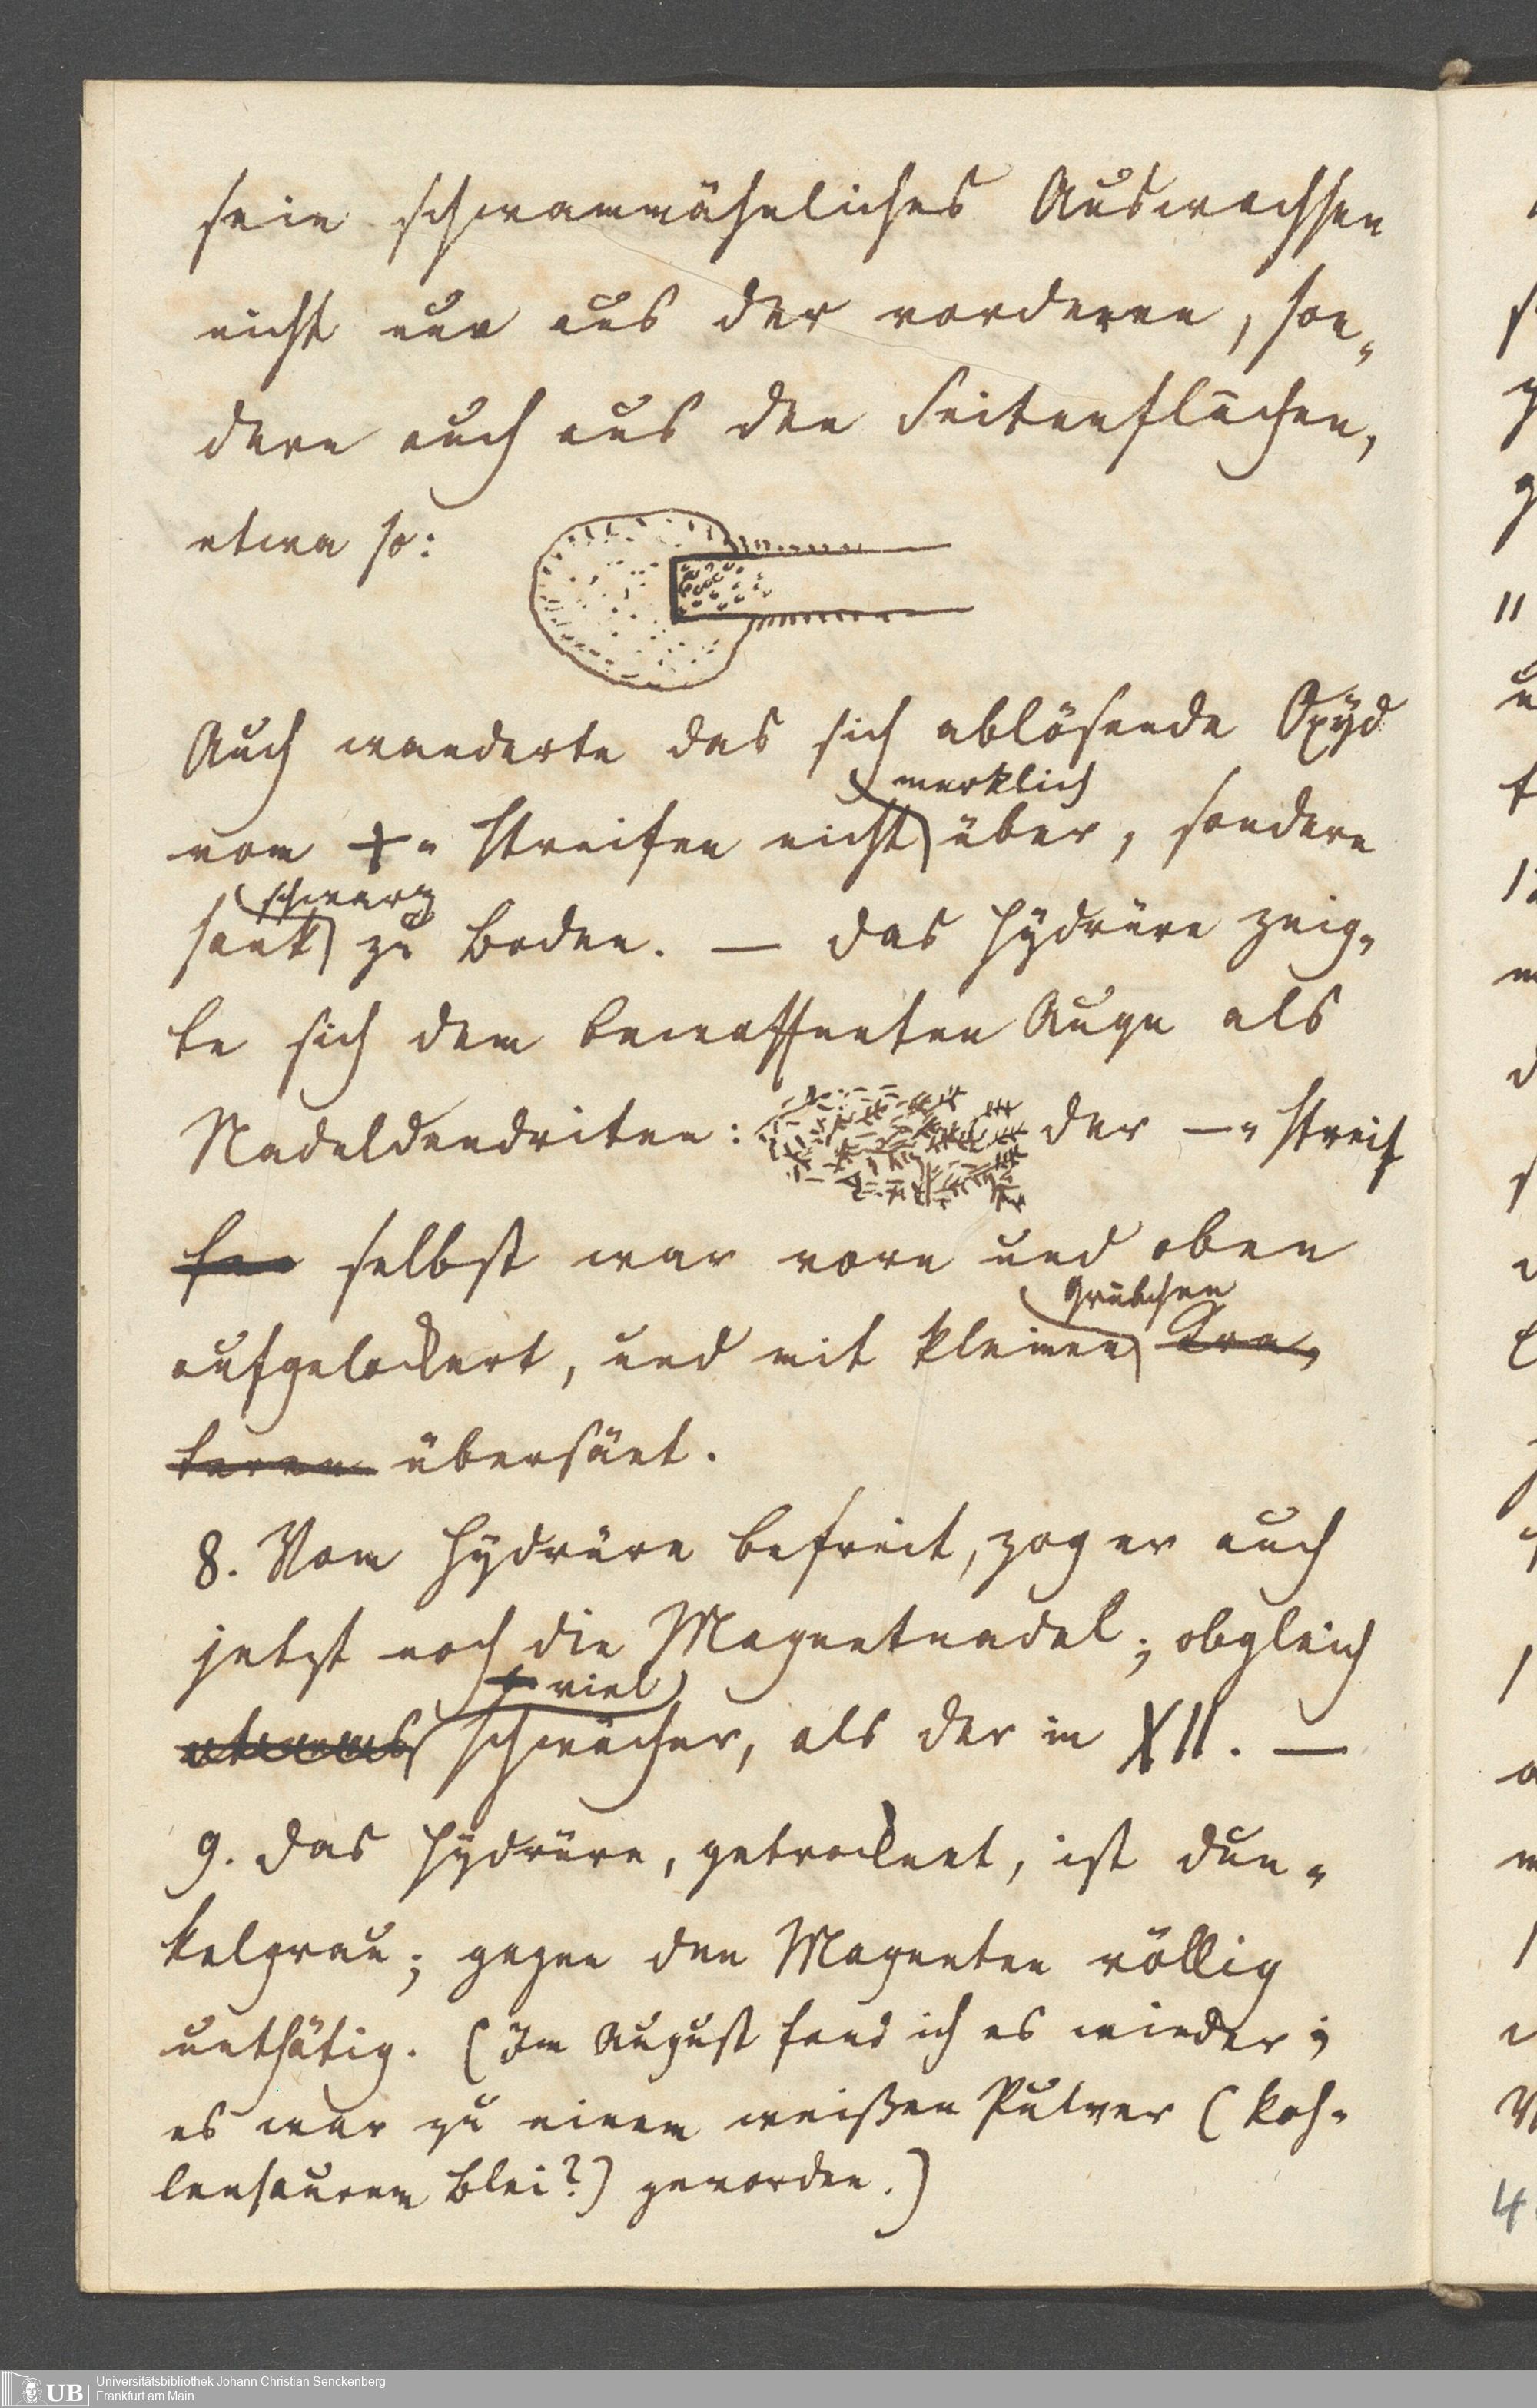 sein schwammähnliches Auswachsen
nicht nur aus der vorderen, son-
dern auch aus den Seitenflächen,
etwa so:
Auch wanderte das sich ablösende Oxÿd
merklich
vom +- Streifen nicht über, sondern
schwarz
sank zu Boden. — Das Hÿdrüre zeig-
te sich dem bewaffneten Auge als
Nadeldendriten: der —- Streif
fen selbst war vorn und oben
Grübchen
aufgelockert, und mit kleinen Kra-
teren übersäet.
8. Vom Hÿdrüre befreit, zog er auch
jetzt noch die Magnetnadel; obgleich
viel
etwas schwächer, als der in XII. —
9. Das Hÿdrüre, getrocknet, ist dun-
kelgrau; gegen den Magneten völlig
unthätig. (Im August fand ich es wieder;
es war zu einem weißen Pulver (koh-
lensaurem Blei?) geworden.)
Universitätsbibliothek Johann Christian Senckenberg
UB
Frankfurt am Main